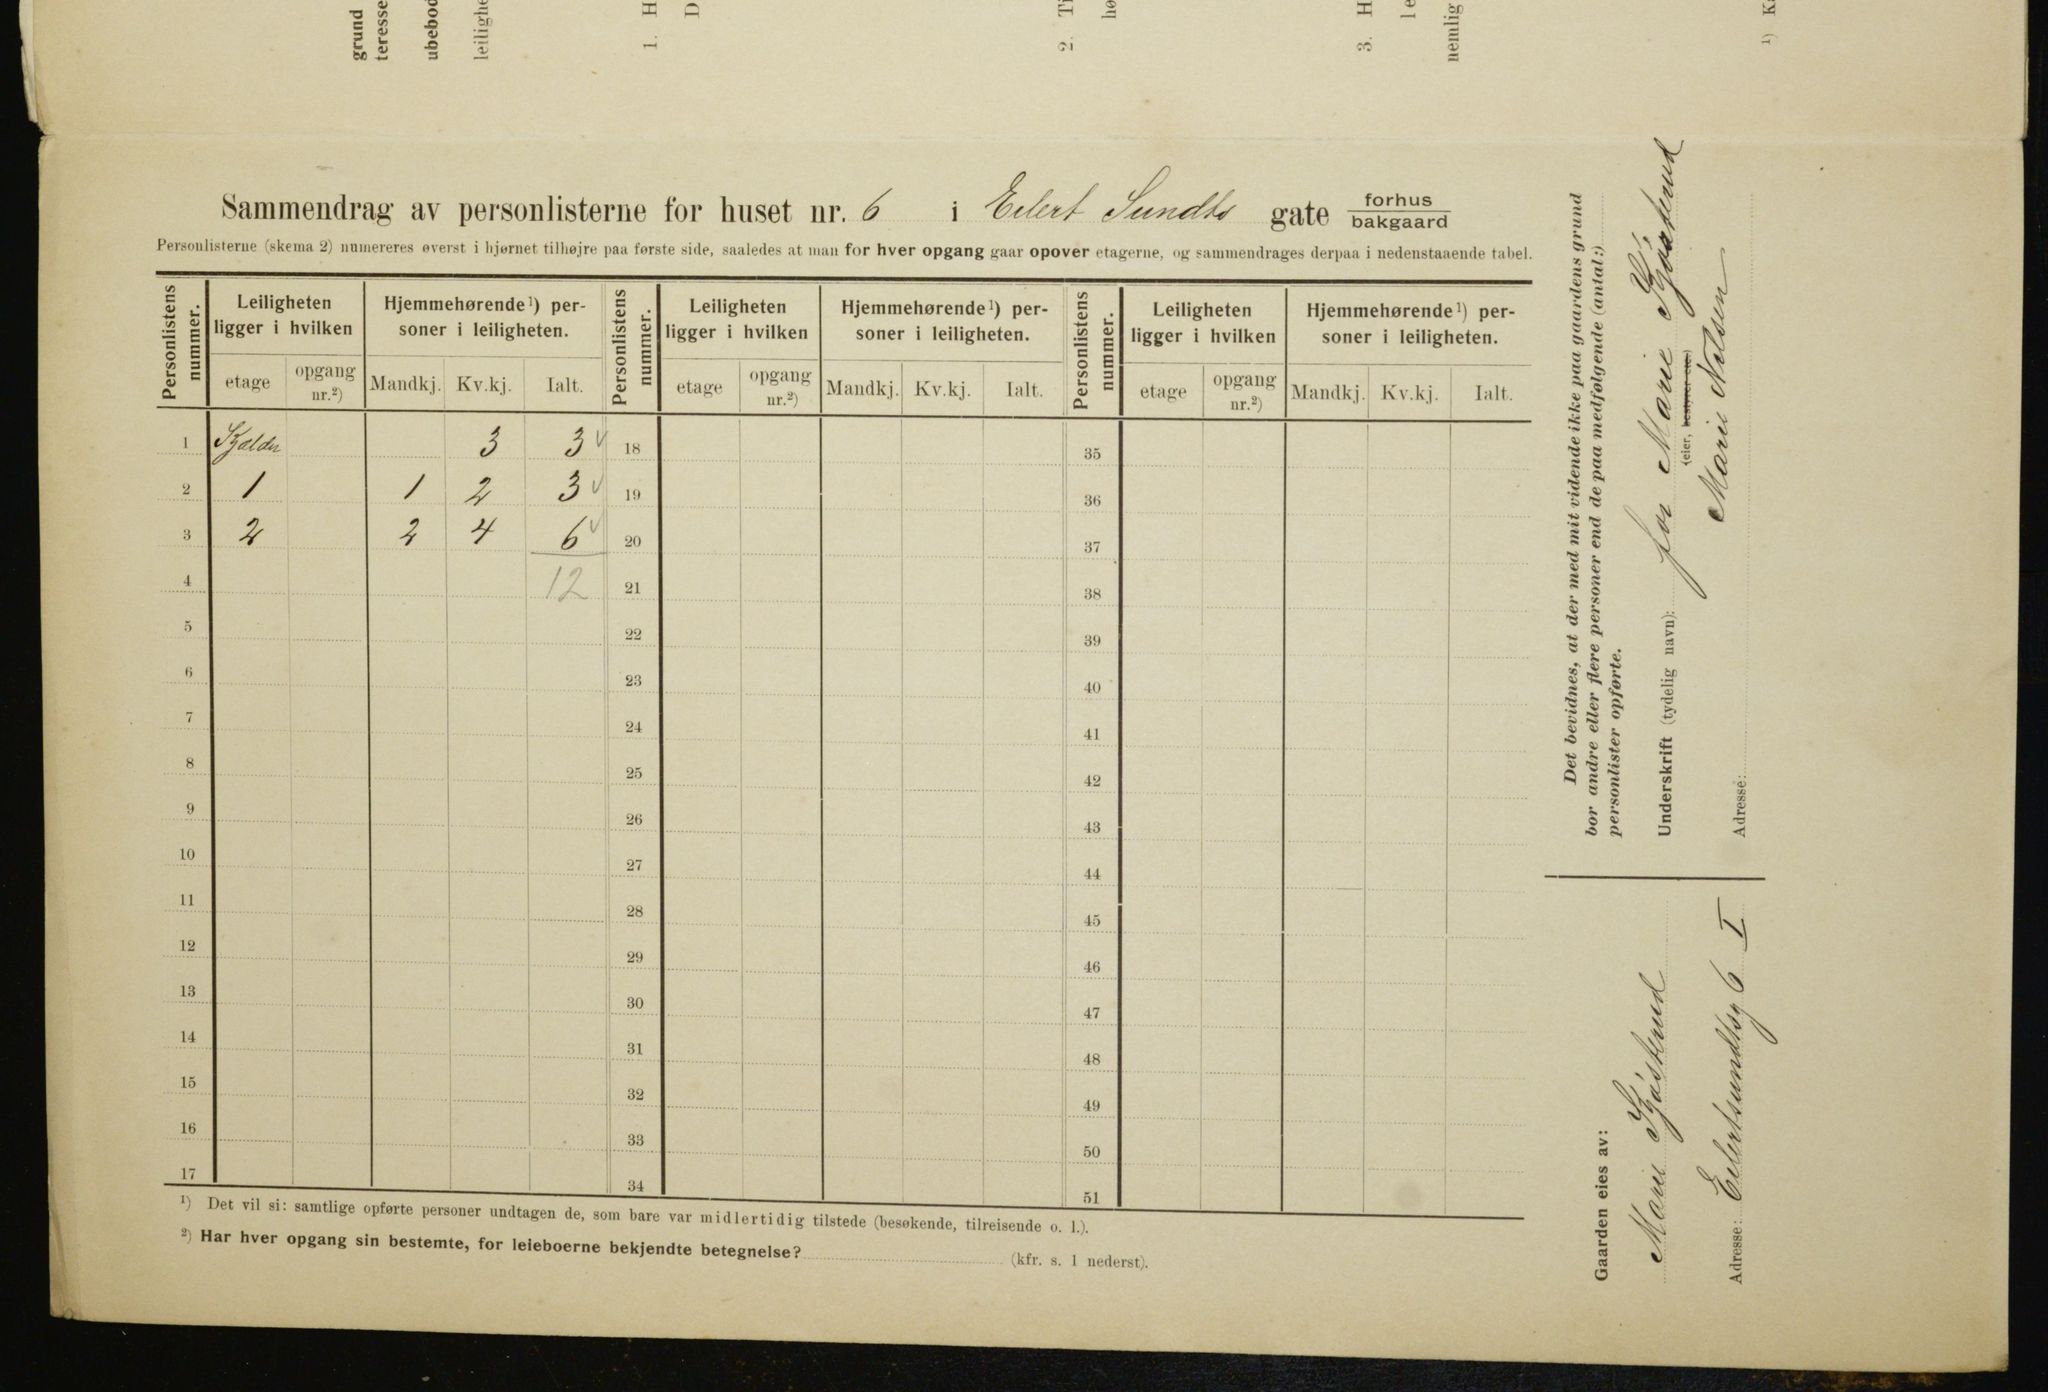 grund
teresse
ubebod
leilighe
1. H
D
2. Ti
hø
3. H
le
nemlig
1) Ka
Sammendrag av personlisterne for huset nr. 6 i Eilert Sundts gate forhus
bakgaard
Personlisterne (skema 2) numereres øverst i hjørnet tilhøjre paa første side, saaledes at man for hver opgang gaar opover etagerne, og sammendrages derpaa i nedenstaaende tabel.
Personlistens nummer. Leiligheten ligger i hvilken Hjemmehørende 1) personer i leiligheten. Personlistens nummer. Leiligheten ligger i hvilken Hjemmehørende 1) personer i leiligheten. Personlistens nummer. Leiligheten ligger i hvilken Hjemmehørende 1) personer i leiligheten.
etage opgang nr.2) Mandkj. Kv.kj. Ialt. etage opgang nr.2) Mandkj. Kv.kj. Ialt. etage opgang nr.2) Mandkj. Kv.kj. Ialt.
1 Kjælder 3 3 18 35
2 1 1 2 3 19 36
3 2 2 4 6 20 37
4 12 21 38
5 22 39
6 23 40
7 24 41
8 25 42
9 26 43
10 27 44
11 28 45
12 29 46
13 30 47
14 31 48
15 32 49
16 33 50
17 34 51
1) Det vil si: samtlige opførte personer undtagen de, som bare var midlertidig tilstede (besøkende, tilreisende o. l.).
2) Har hver opgang sin bestemte, for leieboerne bekjendte betegnelse? (kfr. s. 1 nederst).
Det bevidnes, at der med mit vidende ikke paa gaardens grund
bor andre eller flere personer end de paa medfølgende (antal:)
personlister opførte.
Underskrift (tydelig navn): for Marie Kjøsterud
(eier, bestyrer etc.)
Marie Nilsen
Adresse:
Gaarden eies av:
Marie Kjøsterud
Adresse: Eilertsundtsg 6 I